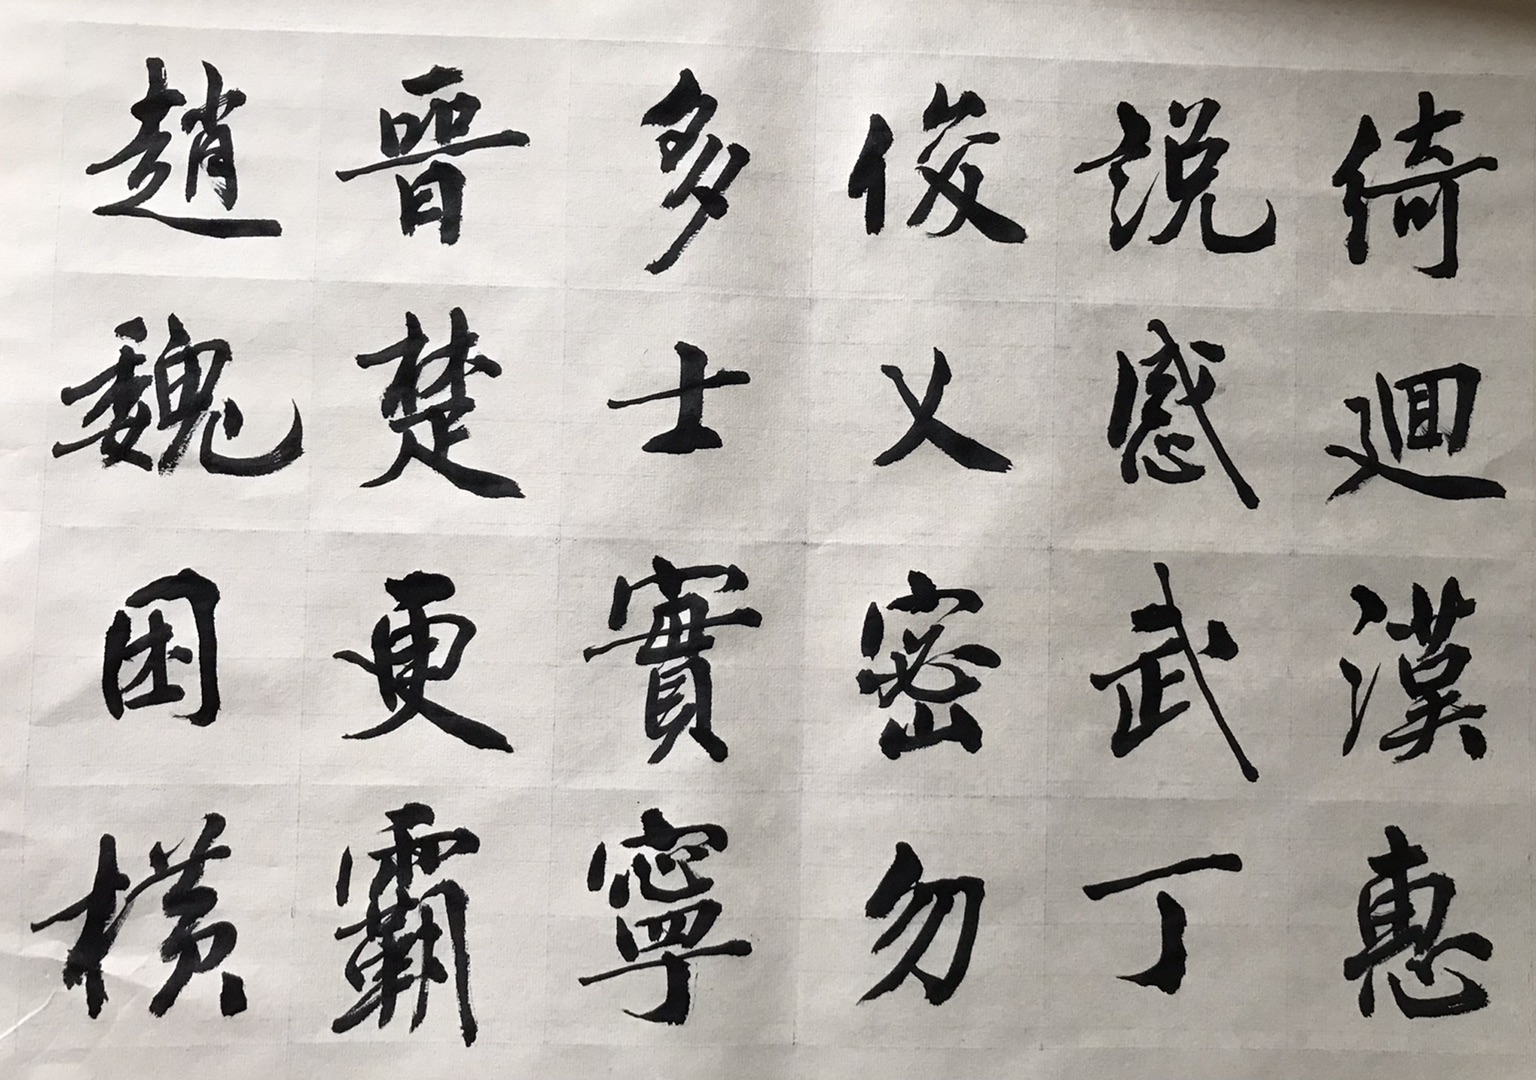 綺迴漢惠
説感武丁
俊乂密勿
多士寔寧
晉楚更霸
趙魏困橫